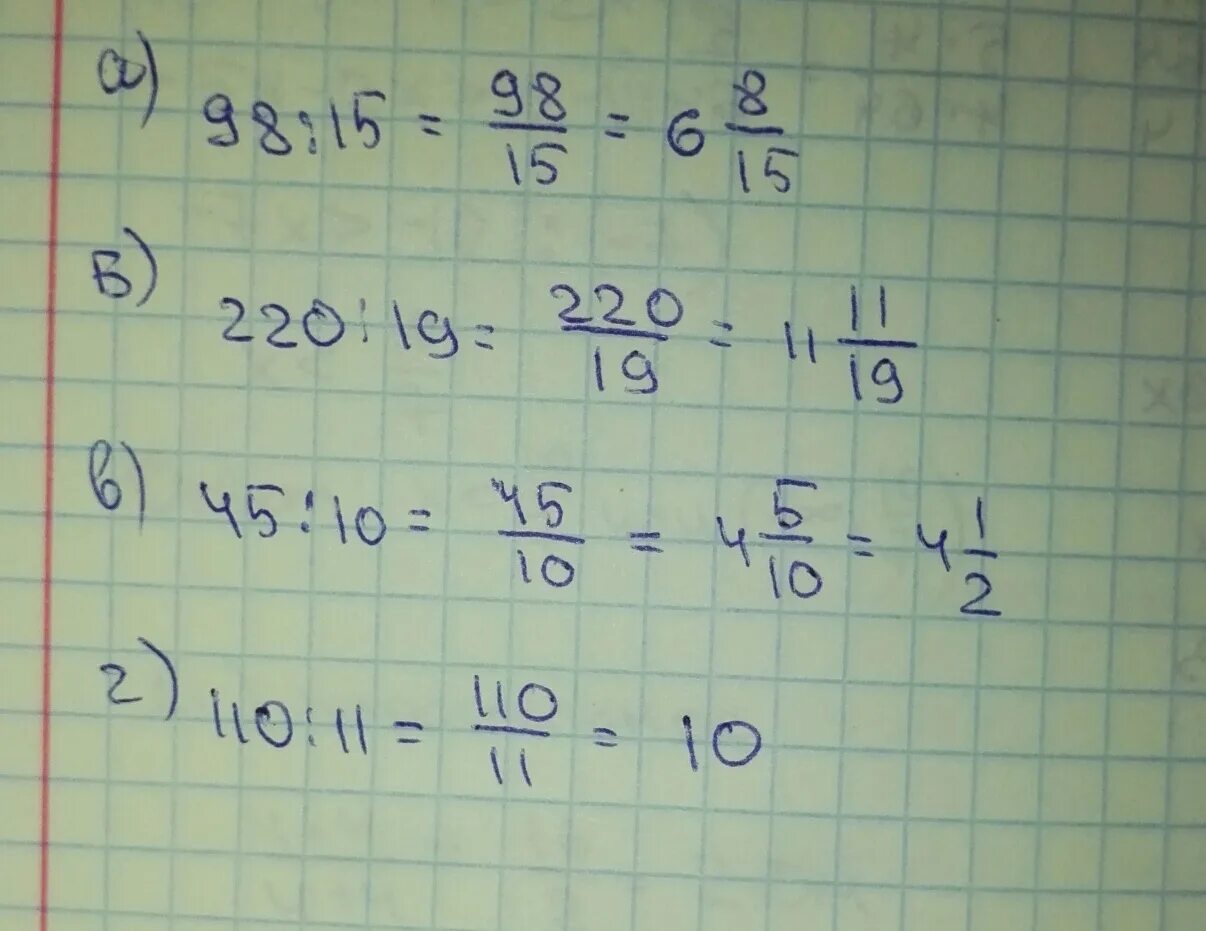 а) 98:15 = 98/15 = 6 8/15
Б) 220:19 = 220/19 = 11 11/19
в) 45:10 = 45/10 = 4 5/10 = 4 1/2
г) 110:11 = 110/11 = 10